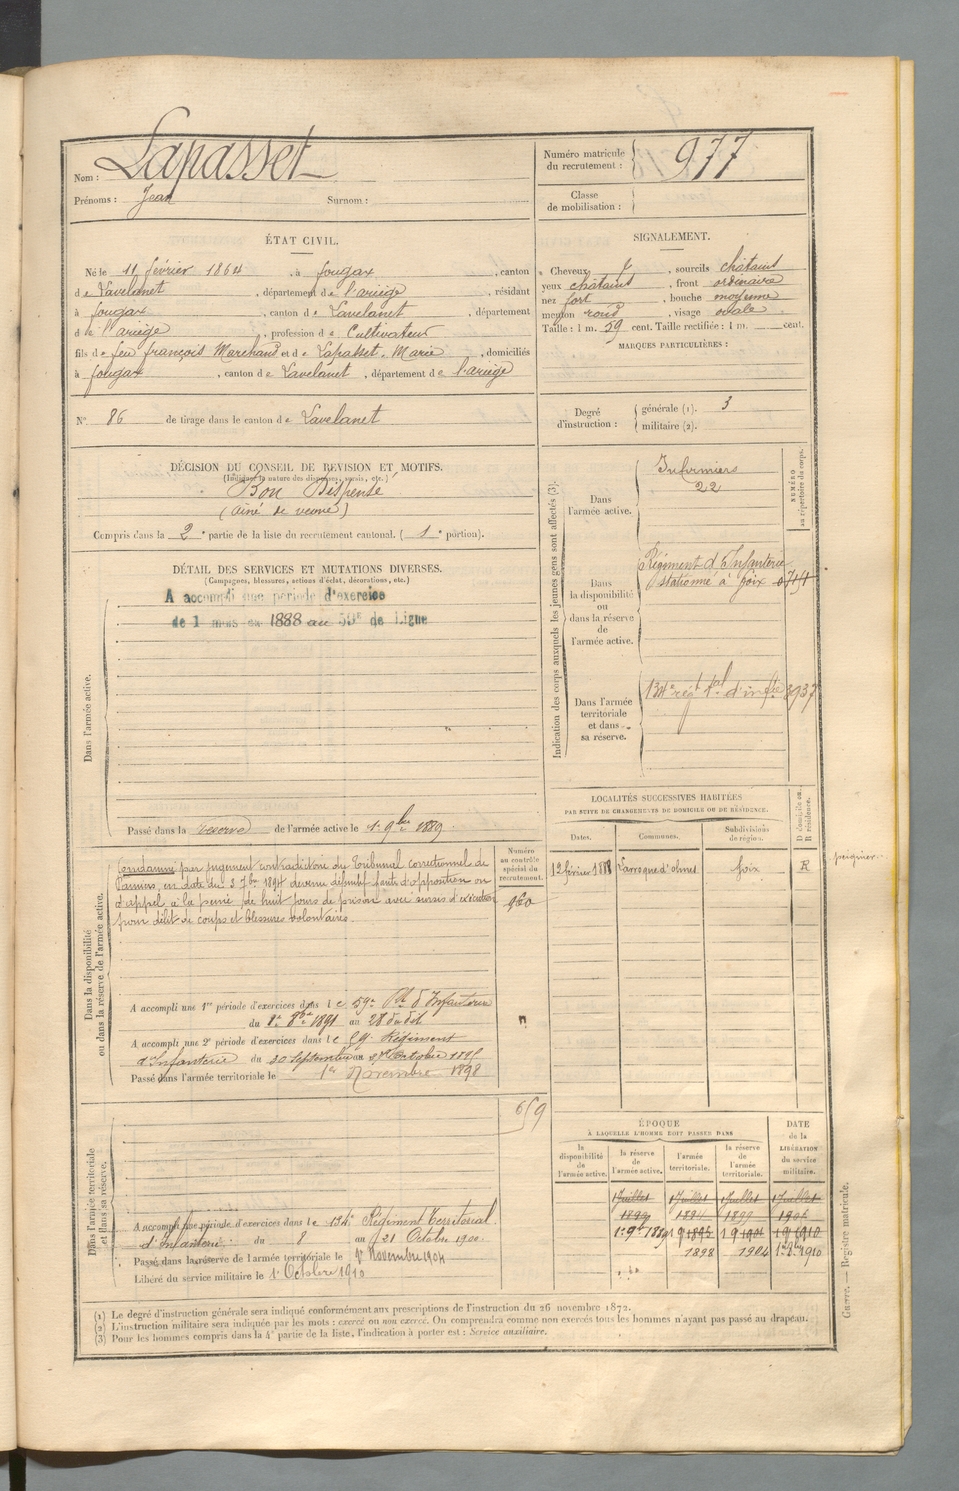 Nom : Lapasset
Prénoms : Jean Surnom :
Numéro matricule du recrutement : 977
Classe de mobilisation :
ÉTAT CIVIL.
Né le 11 février 1864, à fougax, canton
de Lavelanet, département de l'ariège, résidant
à fougax, canton de Lavelanet, département
de l'ariège, profession de Cultivateur
fils de feu françois Marchand et de Lapasset Marie, domiciliés
à fougax, canton de Lavelanet, département de l'ariège
N° 86 de tirage dans le canton de Lavelanet
SIGNALEMENT.
Cheveux, sourcils châtains
yeux châtains, front ordinaire
nez fort, bouche moyenne
menton rond, visage ovale
Taille : 1 m. 59 cent. Taille rectifiée : 1 m. cent.
MARQUES PARTICULIÈRES :
Degré d'instruction : générale (1). 3
militaire (2).
DÉCISION DU CONSEIL DE REVISION ET MOTIFS.
(Indiquer la nature des dispenses, sursis, etc.)
Bon Dispensé
(ainé de veuve)
Compris dans la 2e partie de la liste du recrutement cantonal. (1e portion).
DÉTAIL DES SERVICES ET MUTATIONS DIVERSES.
(Campagnes, blessures, actions d'éclat, décorations, etc.)
Dans l'armée active.
A accompli une période d'exercice
de 1 mois en 1888 au 59e de Ligne
Passé dans la réserve de l'armée active le 1 9bre 1889.
Indication des corps auxquels les jeunes gens sont affectés (3).
NUMÉRO au répertoire du corps.
Dans l'armée active.
Infirmiers
22
Dans la disponibilité ou dans la réserve de l'armée active.
Régiment d'Infanterie
stationné à foix
Dans l'armée territoriale et dans sa réserve.
134e régt tal d'infie 3937
LOCALITÉS SUCCESSIVES HABITÉES
PAR SUITE DE CHANGEMENTS DE DOMICILE OU DE RÉSIDENCE.
Dates. Communes. Subdivisions de région. D domicile ou R résidence.
12 février 1888 Laroque d'olmes foix R
peignier
Dans la disponibilité ou dans la réserve de l'armée active.
Numéro au contrôle spécial du recrutement.
960
Condamné par jugement contradictoire du Tribunal correctionnel de
Pamiers, en date du 3 7bre 1894 devenu définitif faute d'opposition ou
d'appel à la peine de huit jours de prison avec sursis d'exécution
pour délit de coups et blessures volontaires.
A accompli une 1re période d'exercices dans le 59e Rt d'Infanterie
du 1er 8bre 1891 au 28 dudit
A accompli une 2e période d'exercices dans le 59e Régiment
d'Infanterie du 30 Septembre au Octobre 1895
Passé dans l'armée territoriale le 1er Novembre 1898
Dans l'armée territoriale et dans sa réserve.
659
A accompli une période d'exercices dans le 134e Régiment Territorial
d'Infanterie du 8 au 21 Octobre 1900.
Passé dans la réserve de l'armée territoriale le 1er Novembre 1904
Libéré du service militaire le 1er Octobre 1910
ÉPOQUE
À LAQUELLE L'HOMME DOIT PASSER DANS
la disponibilité de l'armée active. la réserve de l'armée active. l'armée territoriale. la réserve de l'armée territoriale. DATE de la LIBÉRATION du service militaire.
1 Juillet 1 Juillet 1 Juillet 1 Juillet
1899
1898 1904 1910
(1) Le degré d'instruction générale sera indiqué conformément aux prescriptions de l'instruction du 26 novembre 1872.
(2) L'instruction militaire sera indiquée par les mots : exercé ou non exercé. On comprendra comme non exercés tous les hommes n'ayant pas passé au drapeau.
(3) Pour les hommes compris dans la 4e partie de la liste, l'indication à porter est : Service auxiliaire.
Guerre. — Registre matricule.